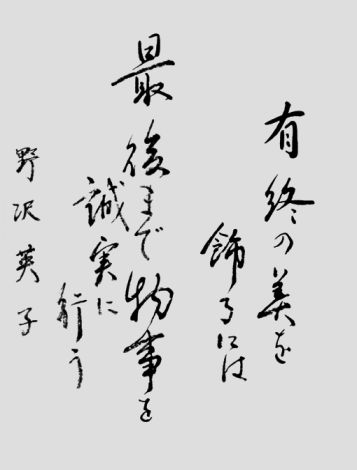 有終の美を
飾るには
最後まで物事を
誠実に
行う
野沢英子